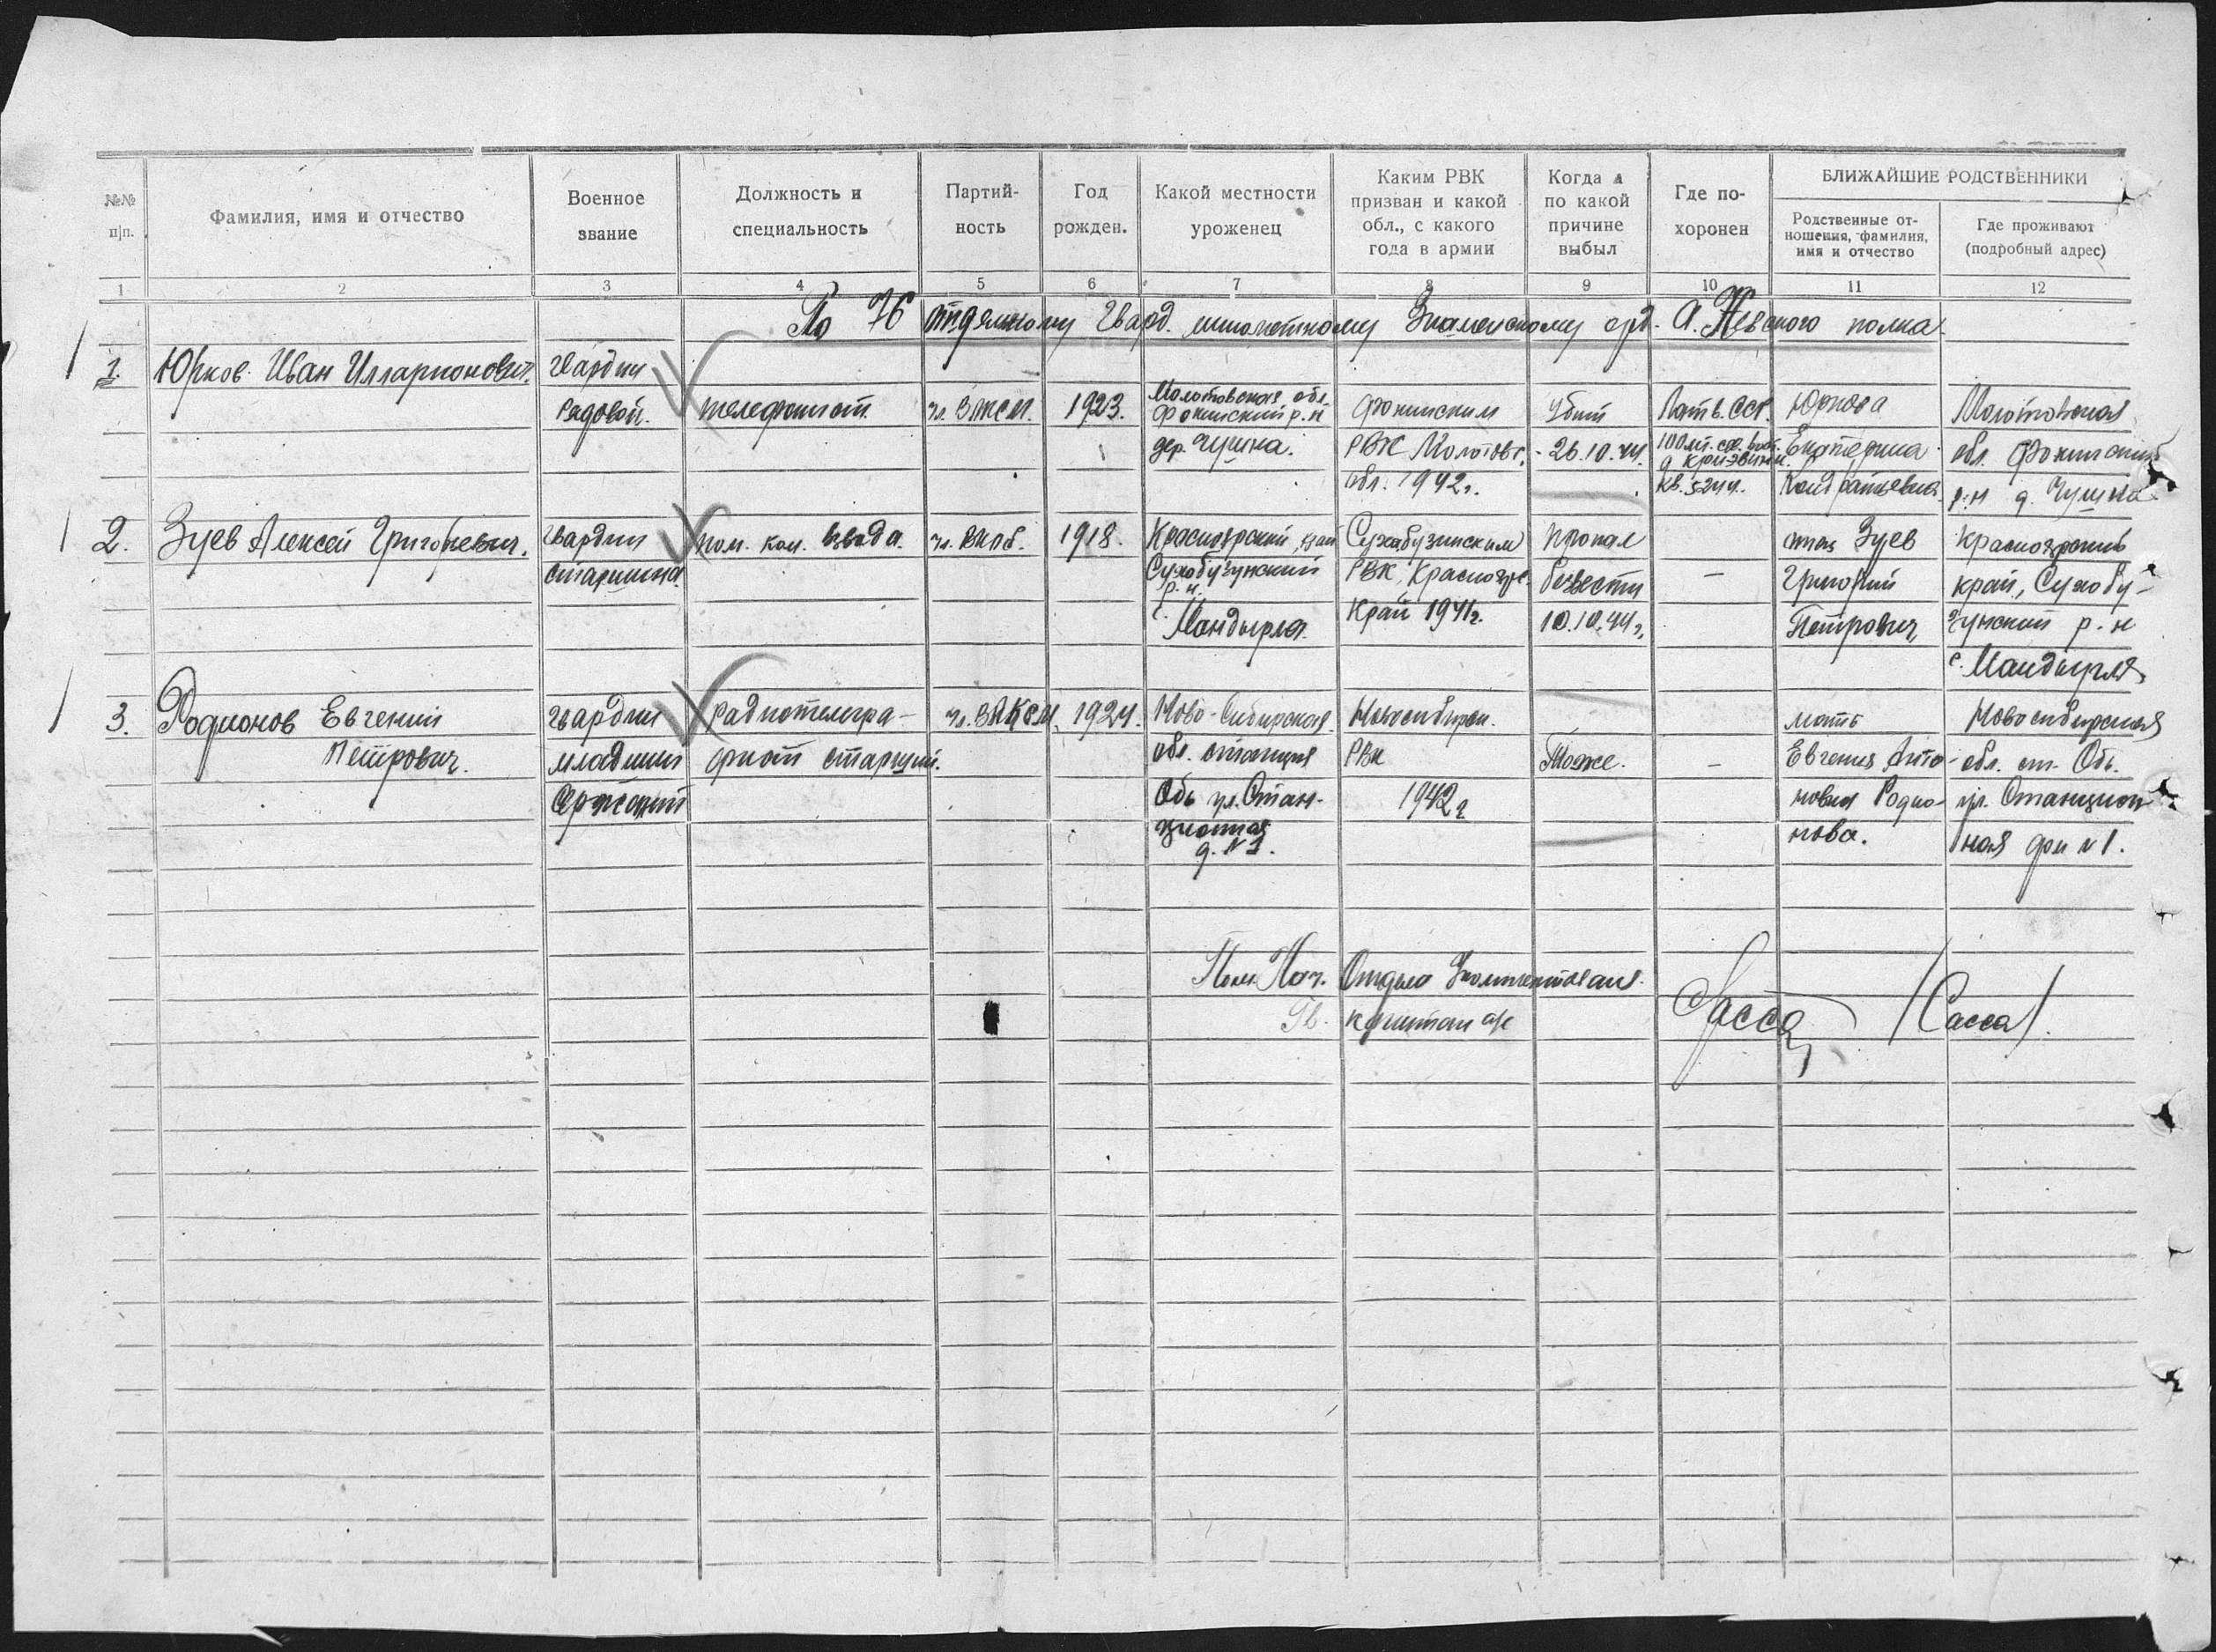 №№ п|п.
Фамилия, имя и отчество
Военное звание
Должность и специальность
Партий-ность
Год рожден.
Какой местности уроженец
Каким РВК призван и какой обл., с какого года в армии
Когда и по какой причине выбыл
Где по-хоронен
БЛИЖАЙШИЕ РОДСТВЕННИКИ
Родственные от-ношения, фамилия, имя и отчество
Где проживают (подробный адрес)
1 2 3 4 5 6 7 8 9 10 11 12
По 76 отдельному Гвард. минометному Знаменскому орд. А. Невского полка
1. Юрков Иван Илларионович.
гвардии
рядовой.
телефонист
чл. ВЛКСМ.
1923.
Молотовская обл.
Фокинский р-н
дер. Чушка.
Фокинским
РВК Молотовс.
обл. 1942г.
Убит
26.10.44.
Латв. ССР.
100 мт. сев. вост.
кв. 5244.
Юркова
Екатерина
Кондратьевна
Молотовская
обл. Фокинский
р-н д. Чушка
2. Зуев Алексей Григорьевич.
гвардии
старшина
пом. ком. взвода.
чл. ВКПб.
1918.
Красноярский край
Сухобузунский
р-н.
с. Мандырла
Сухобузинским
РВК, Краснояр.
край 1941г.
пропал
безвести
10.10.44г.
—
отец Зуев
Григорий
Петрович
Красноярский
край, Сухобу-
зунский р-н
с. Мандырля
3. Родионов Евгений
Петрович.
гвардии
младший
сержант
радиотелегра-
фист старший.
чл. ВЛКСМ.
1924.
Ново-Сибирская
обл. станция
Обь ул. Стан-
ционная
д. №1.
Новосибирск.
РВК
1942г
Тоже.
—
мать
Евгения Анто-
новна Родио-
нова.
Новосибирская
обл. ст. Обь.
ул. Станцион-
ная дом №1.
Пом. Нач. Отдела Укомплектования
Гв. капитан а/с
Сасса /Сасса/.